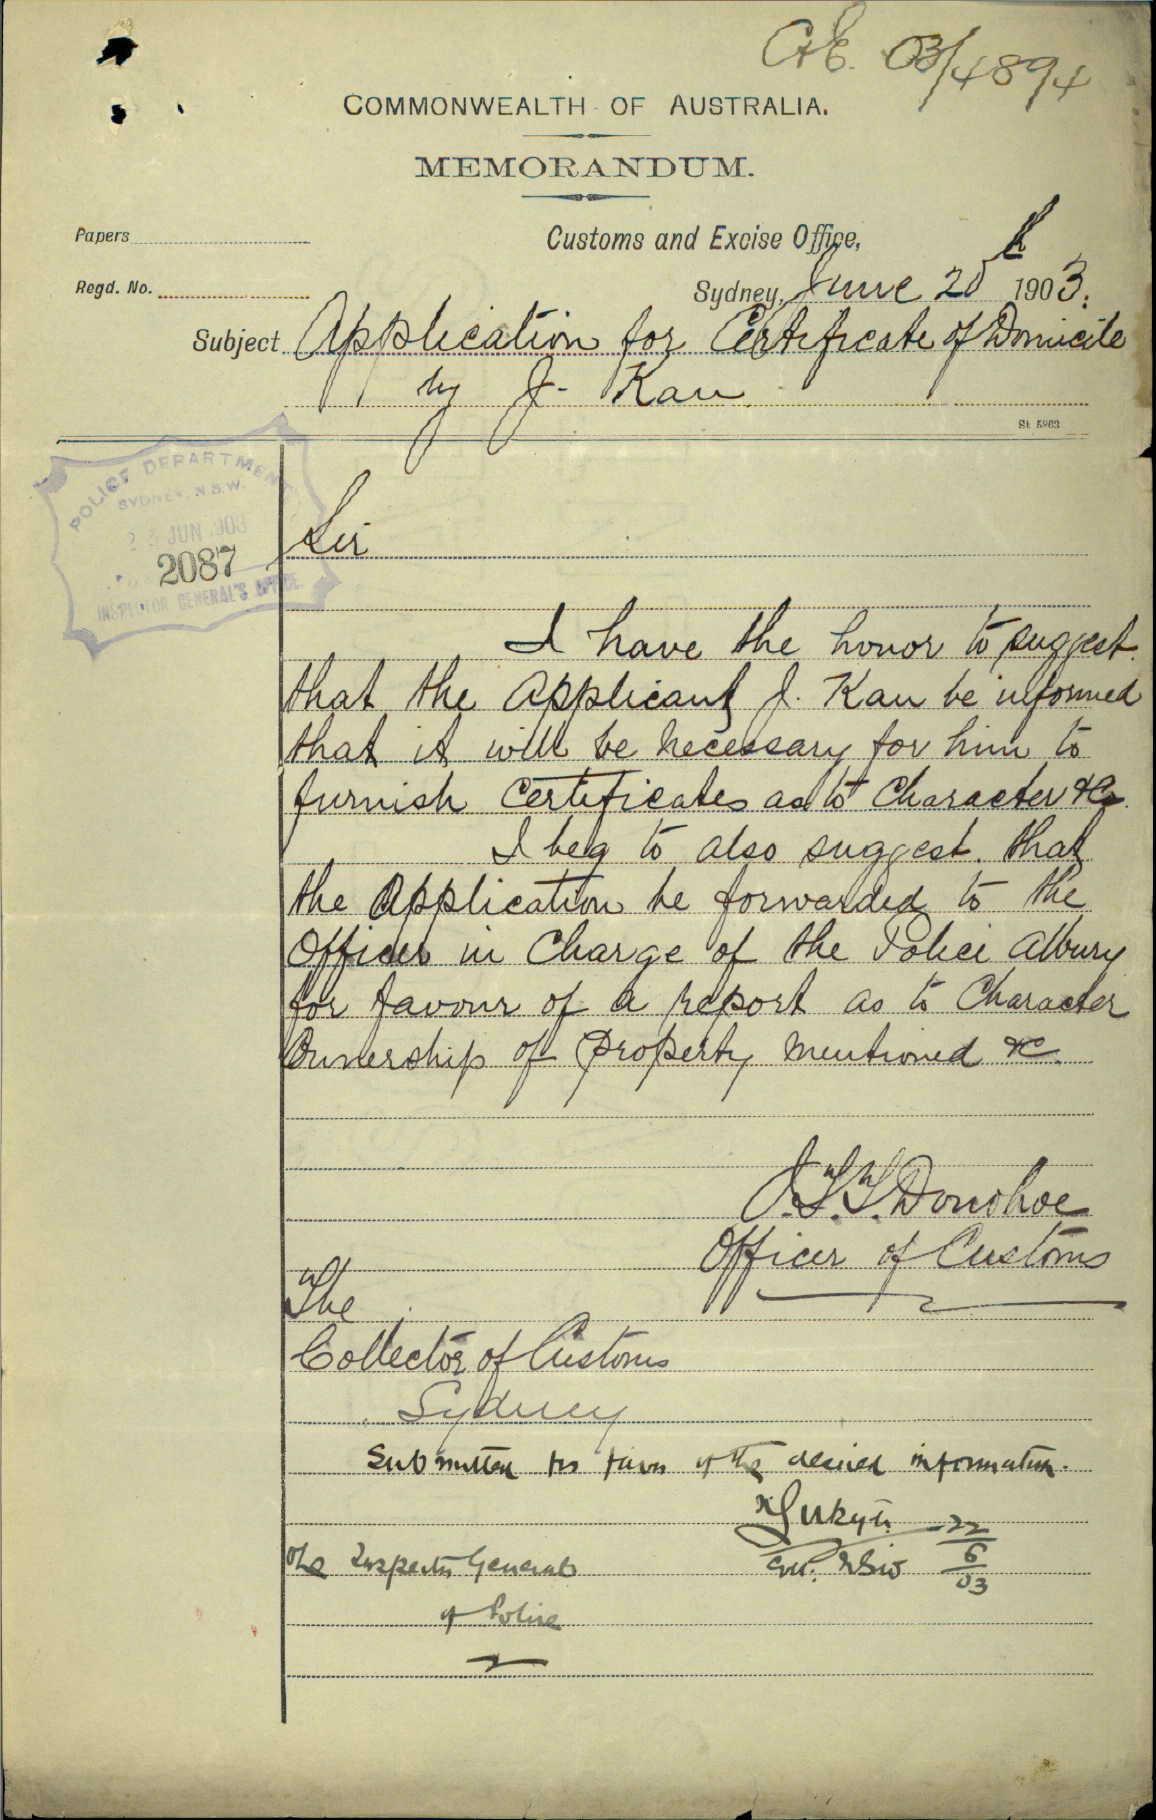 C&E. 03/4894
COMMONWEALTH OF AUSTRALIA.
MEMORANDUM.
Papers
Customs and Excise Office,
Regd. No.
Sydney, June 20th 1903.
Subject Application for Certificate of Domicile
by J. Kau
St. 5263
POLICE DEPARTMENT
SYDNEY, N.S.W.
JUN 1903
2087
INSPECTOR GENERAL'S OFFICE
Sir
I have the honor to suggest
that the Applicant J. Kau be informed
that it will be necessary for him to
furnish Certificates as to Character &c.
I beg to also suggest. that
the Application be forwarded to the
Officer in Charge of the Police Albury
for favour of a report as to Character
Ownership of property mentioned &c.
J.T.T. Donohoe
Officer of Customs
The
Collector of Customs
Sydney
Submitted for favor of the desired information.
22/6/03
The Inspector General
of Police